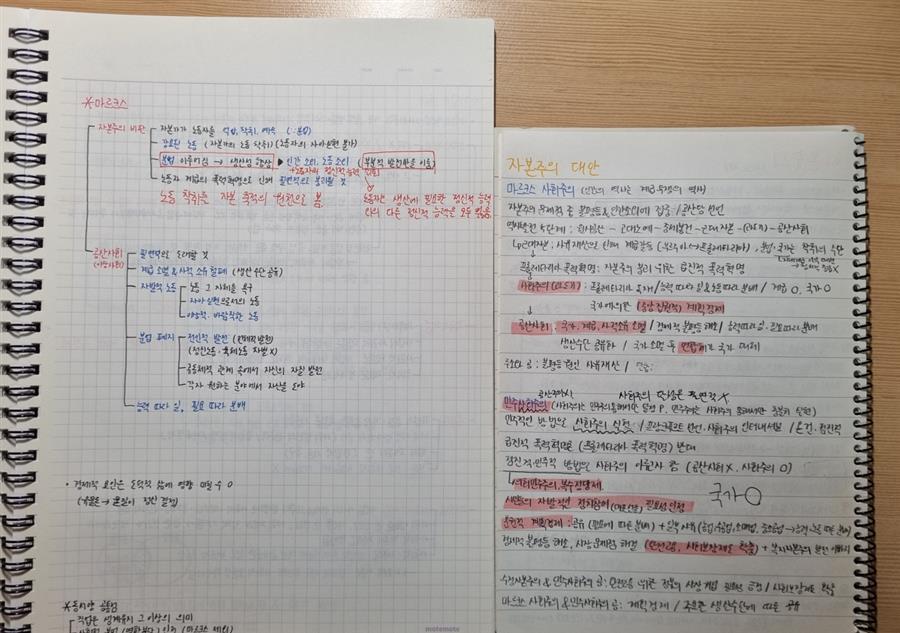 ※마르크스
자본주의 비판
자본가가 노동자를 억압, 착취, 예속 (∵분업)
강요된 노동 (자본가의 노동 착취) (노동자의 자아실현 불가)
분업 이루어짐 → 생산성 향상 ▶ 인간 소외, 노동 소외 (부분적 발전만을 이룸)
노동자 계급의 폭력혁명으로 인해 필연적으로 붕괴될 것
노동 착취를 자본 축적의 원천으로 봄.
노동자는 생산에 필요한 정신적 능력
외의 다른 정신적 능력은 모두 잃음
공산사회
(이상사회)
필연적으로 도래할 것
계급 소멸 & 사적 소유 철폐 (생산 수단 공유)
자발적 노동
노동 그 자체를 욕구
자아실현으로서의 노동
바람직한 노동
분업 폐지
전인적 발전 (전체적 발전)
(정신노동·육체노동 차별 X)
공동체적 관계 속에서 자신의 자질 발전
각자 원하는 분야에서 자신을 도야
능력 따라 일, 필요 따라 분배
· 경제적 요인은 도덕적 삶에 영향 미칠 수 O
※동서양 공통점
직업은 생계유지 그 이상의 의미
motemote
자본주의 대안
마르크스 사회주의 (인간의 역사는 계급 투쟁의 역사)
자본주의 문제점 중 불평등 & 인간소외에 집중 / 공산당 선언
역사발전 5단계 : 원시공산 - 고대노예 - 중세봉건 - 근대자본 - - 공산사회
프롤레타리아 폭력혁명 : 자본주의 붕괴 위한 급진적 폭력혁명
사회주의 : 프롤레타리아 독재 / 능력 따라 일 & 노동 따라 분배 / 계급 O, 국가 O
국가에 의한 (중앙집권적) 계획경제
공산사회 : 국가, 계급, 사적소유 소멸 / 경제적 불평등 해소 / 능력따라 일·필요따라 분배
생산수단 공유화 / 국가 소멸 후 연합체가 국가 대체
불평등 원인 사유재산
민주사회주의 (사회주의는 민주주의를 통해서만 달성 P. 민주주의는 사회주의 통해서만 충분히 실현)
민주적인 방법으로 사회주의 실현 / 프랑크푸르트 선언·사회주의 인터내셔널 / 온건·점진적
급진적 폭력혁명론 (프롤레타리아 폭력혁명) 반대
점진적·민주적 방법으로 사회주의 이뤄야 함 (공산사회 X, 사회주의 O)
의회민주주의, 복수정당제
국가 O
시민들의 자발적인 정치참여 필요성 인정
경제적 불평등 해소, 시장 문제점 해결 (완전고용, 사회보장제도 확충)
수정자본주의 & 민주사회주의 공 : 완전고용 위한 정부의 시장 개입 필요성 인정 / 사회보장제도 확충
마르크스 사회주의 & 민주사회주의 공 : 계획경제 / 중요한 생산수단에 대한 공유